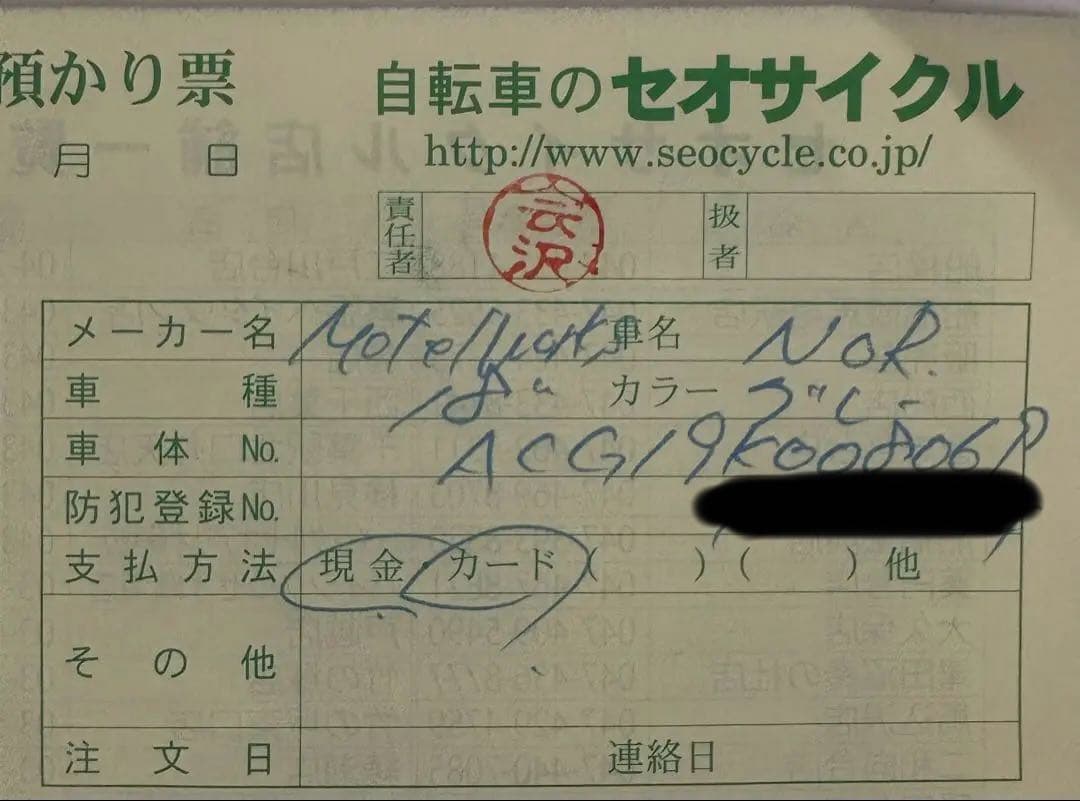 預かり票 自転車のセオサイクル
月 日 http://www.seocycle.co.jp/
責任者 会沢 扱者
メーカー名 車名 NOR.
車種 18" カラー グレー
車体No. ACG19K00806P
防犯登録No.
支払方法 現金・カード ( ) ( ) 他
その他
注文日 連絡日